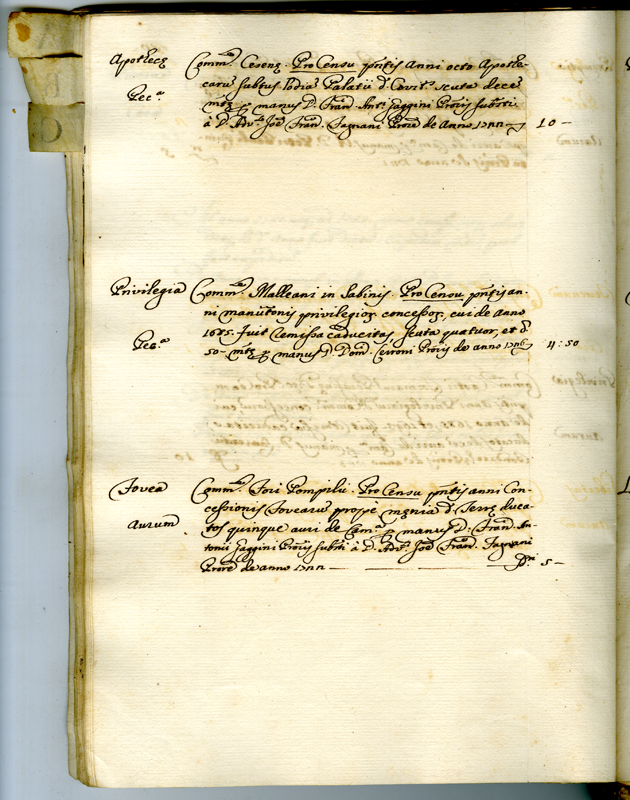 Apothecę Comm.s Cesenę. Pro Censu pntis Anni octo Apothe-
caru subtus Podia Palatii d. Civit.s scuta decē
Pec.a mtę p manus D. Fran. Ant. Faggini Proris substi
à D. Adv. Joē Fran. Fagnani Prore de Anno 10 —
Privilegia Comm.s Malleani in Sabinis. Pro Censu pntis an-
ni manutonis privilegior. concessor. cui de Anno
1685. fuit remissa caducitas, scuta quatuor, et
Pec.a 50 - mtę p manus D. Dom. Proris de anno 4 : 50
Fovea Comm.s Fori Pompilii. Pro Censu pntis anni Con-
cessionis Fovearu propè męnia d. Terrę duca-
Aurum tos quinque auri de Cam. p manus D. Fran. An-
tonii Faggini Proris substi à D. Adv. Joē Fran. Fagnani
Prore de anno 5 —